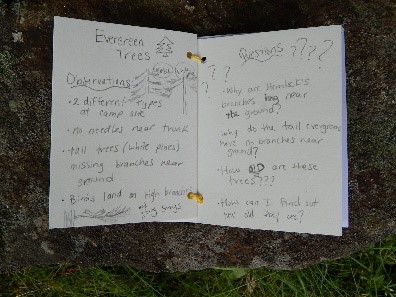 Evergreen
Trees
Observations
• 2 different types
at camp site
• no needles near trunk
• tall trees (white pines)
missing branches near
ground
• Birds land on high branches
songs
Questions ???
??
?
• Why are Hemlock's
branches long near
the ground?
why do the tall evergreens
have no branches near
ground?
• How old are these
trees???
• How can I find out
how old they are?